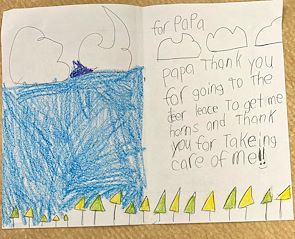 for PaPa
Papa Thank you
for going to The
deer leace To get me
horns and Thank
you for Takeing
care of me!!